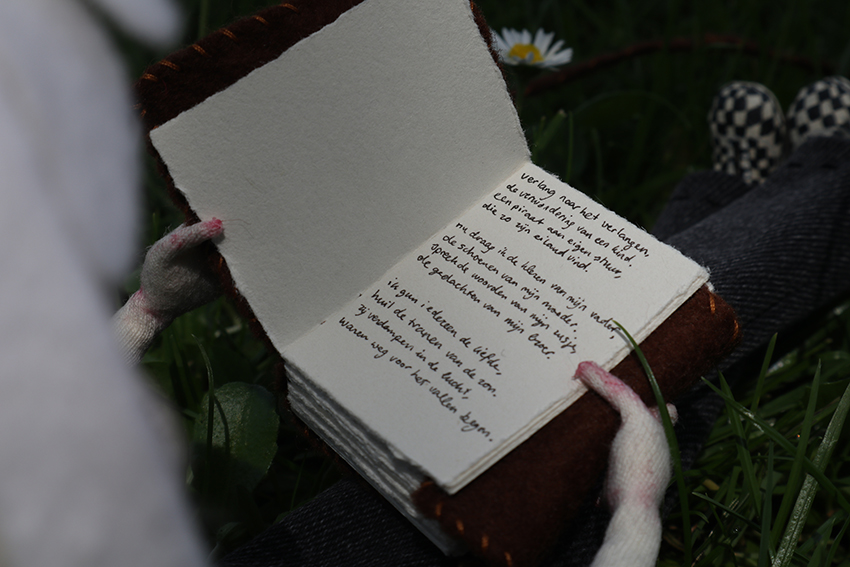 verlang naar het verlangen,
de verwondering van een kind.
een piraat aan eigen stuur,
die zo zijn eiland vind.
nu draag ik de kleren van mijn vader,
de schoenen van mijn moeder.
spreek de woorden van mijn zusje,
de gedachten van mijn broer.
ik gun iedereen de liefde,
huil de tranen van de zon.
zij verdampen in de lucht,
waren weg voor het vallen begon.